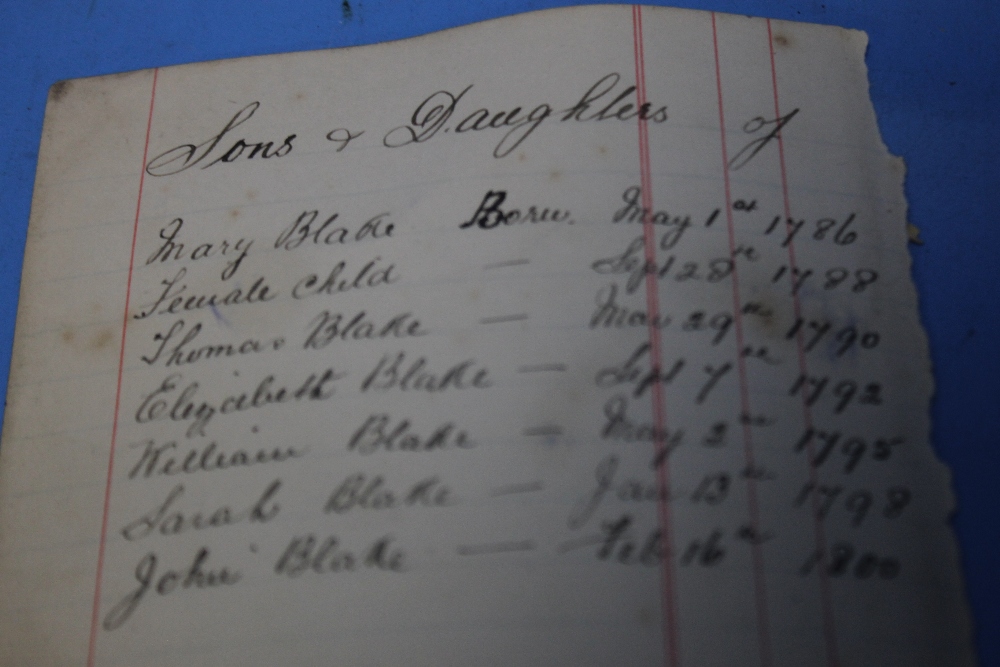 Sons & Daughters of
Mary Blake Born. May 1st 1786
Female Child — Sept 28th 1788
Thomas Blake — Mar 29th 1790
Elizabeth Blake — Sept 7th 1792
William Blake — May 2nd 1795
Sarah Blake — Jan 13th 1798
John Blake — Feb 16th 1800